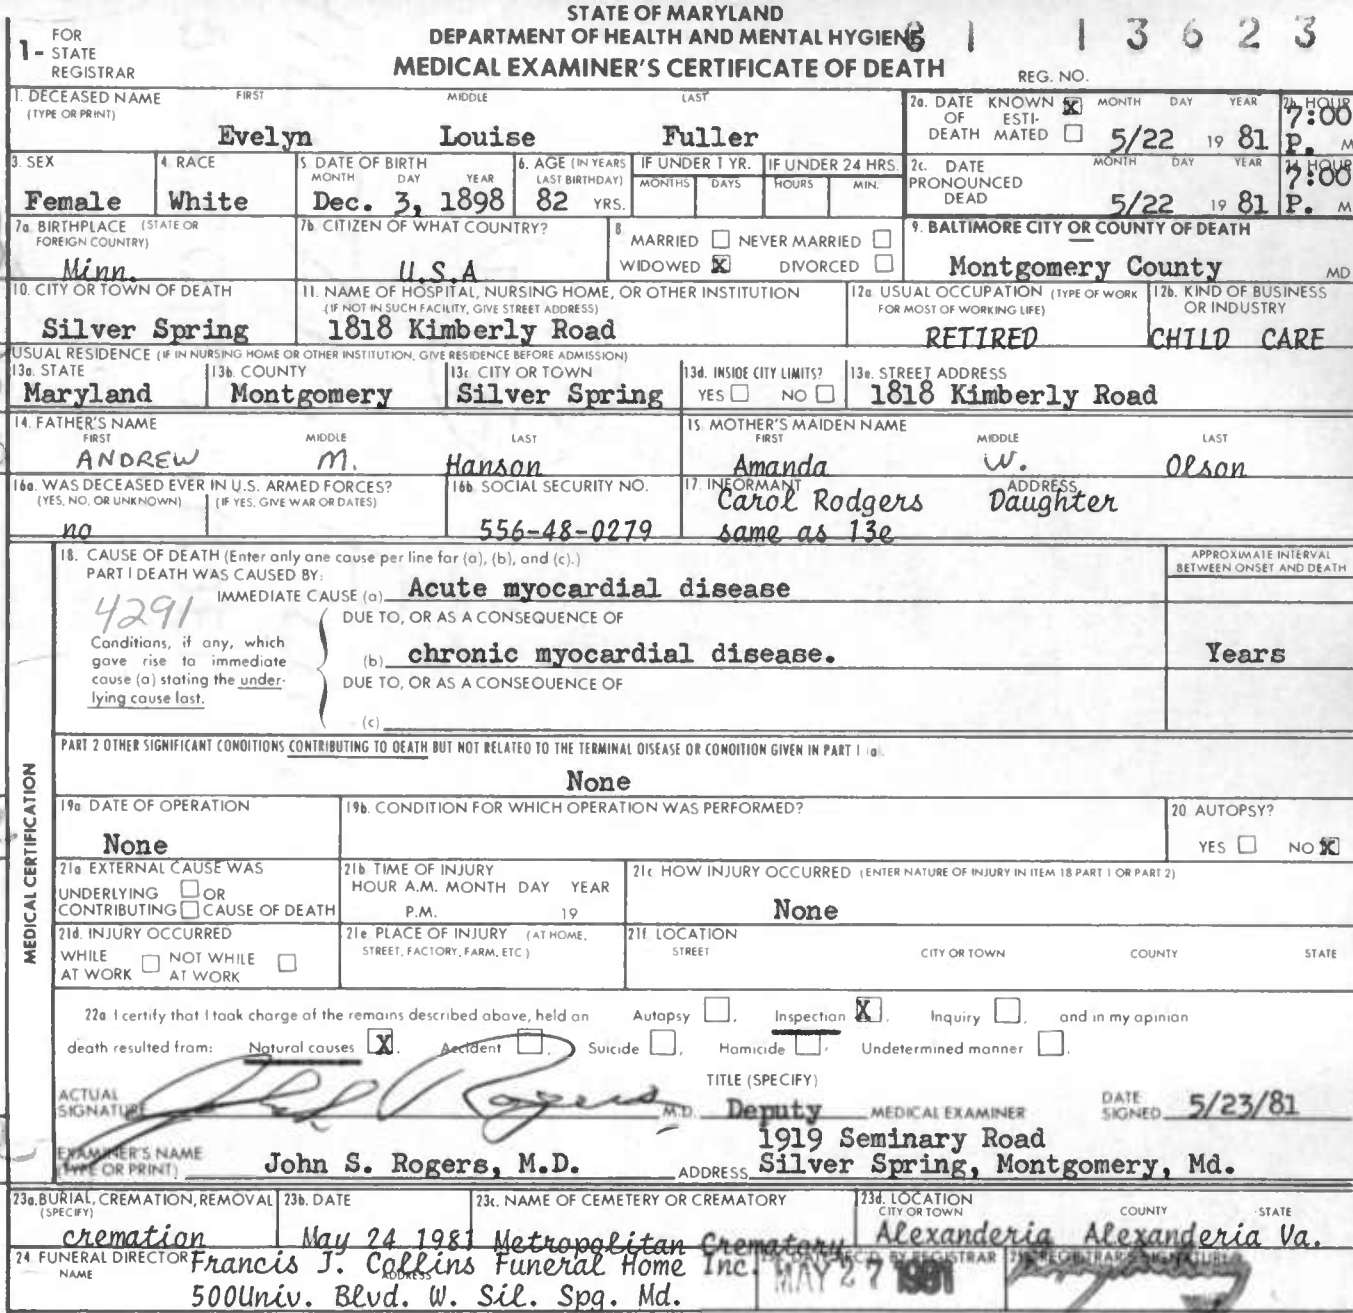 STATE OF MARYLAND
DEPARTMENT OF HEALTH AND MENTAL HYGIENE
MEDICAL EXAMINER'S CERTIFICATE OF DEATH
1- FOR STATE REGISTRAR
81 13623
REG. NO.
1. DECEASED NAME (TYPE OR PRINT) FIRST MIDDLE LAST
Evelyn Louise Fuller
2a. DATE OF DEATH KNOWN X ESTIMATED MONTH DAY YEAR
5/22 19 81
2b. HOUR
7:00 P. M
3. SEX
Female
4. RACE
White
5. DATE OF BIRTH MONTH DAY YEAR
Dec. 3, 1898
6. AGE (IN YEARS LAST BIRTHDAY)
82 YRS.
IF UNDER 1 YR. MONTHS DAYS
IF UNDER 24 HRS. HOURS MIN.
2c. DATE PRONOUNCED DEAD MONTH DAY YEAR
5/22 19 81
2d HOUR
7:00 P. M
7a. BIRTHPLACE (STATE OR FOREIGN COUNTRY)
Minn.
7b. CITIZEN OF WHAT COUNTRY?
U.S.A
8. MARRIED NEVER MARRIED
WIDOWED X DIVORCED
9. BALTIMORE CITY OR COUNTY OF DEATH
Montgomery County MD
10. CITY OR TOWN OF DEATH
Silver Spring
11. NAME OF HOSPITAL, NURSING HOME, OR OTHER INSTITUTION
(IF NOT IN SUCH FACILITY, GIVE STREET ADDRESS)
1818 Kimberly Road
12a. USUAL OCCUPATION (TYPE OF WORK FOR MOST OF WORKING LIFE)
RETIRED
12b. KIND OF BUSINESS OR INDUSTRY
CHILD CARE
USUAL RESIDENCE (IF IN NURSING HOME OR OTHER INSTITUTION, GIVE RESIDENCE BEFORE ADMISSION)
13a. STATE
Maryland
13b. COUNTY
Montgomery
13c. CITY OR TOWN
Silver Spring
13d. INSIDE CITY LIMITS?
YES NO
13e. STREET ADDRESS
1818 Kimberly Road
14. FATHER'S NAME FIRST MIDDLE LAST
ANDREW M. Hanson
15. MOTHER'S MAIDEN NAME FIRST MIDDLE LAST
Amanda W. Olson
16a. WAS DECEASED EVER IN U.S. ARMED FORCES?
(YES, NO, OR UNKNOWN) (IF YES, GIVE WAR OR DATES)
no
16b. SOCIAL SECURITY NO.
556-48-0279
17. INFORMANT ADDRESS
Carol Rodgers Daughter
same as 13e
MEDICAL CERTIFICATION
18. CAUSE OF DEATH (Enter only one cause per line for (a), (b), and (c).)
PART I DEATH WAS CAUSED BY:
APPROXIMATE INTERVAL BETWEEN ONSET AND DEATH
IMMEDIATE CAUSE (a) Acute myocardial disease
4291
DUE TO, OR AS A CONSEQUENCE OF
Conditions, if any, which gave rise to immediate cause (a) stating the underlying cause last.
(b) chronic myocardial disease. Years
DUE TO, OR AS A CONSEQUENCE OF
(c)
PART 2 OTHER SIGNIFICANT CONDITIONS CONTRIBUTING TO DEATH BUT NOT RELATED TO THE TERMINAL DISEASE OR CONDITION GIVEN IN PART I (a).
None
19a DATE OF OPERATION
None
19b. CONDITION FOR WHICH OPERATION WAS PERFORMED?
20 AUTOPSY?
YES NO X
21a EXTERNAL CAUSE WAS
UNDERLYING OR
CONTRIBUTING CAUSE OF DEATH
21b TIME OF INJURY
HOUR A.M. MONTH DAY YEAR
P.M. 19
21c HOW INJURY OCCURRED (ENTER NATURE OF INJURY IN ITEM 18 PART 1 OR PART 2)
None
21d. INJURY OCCURRED
WHILE AT WORK NOT WHILE AT WORK
21e PLACE OF INJURY (AT HOME, STREET, FACTORY, FARM, ETC)
21f. LOCATION
STREET CITY OR TOWN COUNTY STATE
22a I certify that I took charge of the remains described above, held an Autopsy , Inspection X , Inquiry , and in my opinion
death resulted from: Natural causes X , Accident , Suicide , Homicide , Undetermined manner .
ACTUAL SIGNATURE John S Rogers M.D.
TITLE (SPECIFY)
Deputy MEDICAL EXAMINER
DATE SIGNED 5/23/81
EXAMINER'S NAME (TYPE OR PRINT) John S. Rogers, M.D.
ADDRESS 1919 Seminary Road
Silver Spring, Montgomery, Md.
23a. BURIAL, CREMATION, REMOVAL (SPECIFY)
cremation
23b. DATE
May 24 1981
23c. NAME OF CEMETERY OR CREMATORY
Metropolitan Crematory
23d. LOCATION CITY OR TOWN COUNTY STATE
Alexanderia Alexanderia Va.
24 FUNERAL DIRECTOR NAME ADDRESS
Francis J. Collins Funeral Home Inc.
500Univ. Blvd. W. Sil. Spg. Md.
REC'D. BY REGISTRAR
MAY 27 1981
REGISTRAR'S SIGNATURE